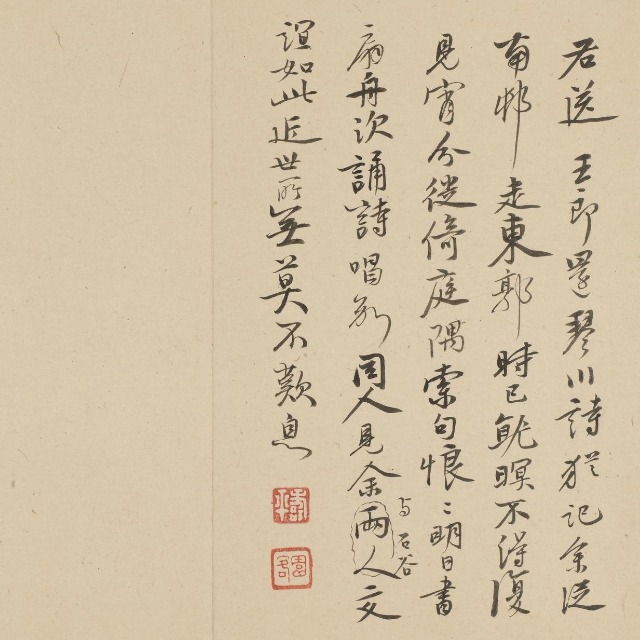 右送王郎還琴川詩猶記余從
南邨走東郭時已就暝不得復
見宵分徙倚庭隅索句悢〻明日書
扇舟次誦詩唱別同人見余兩人交
与石谷
誼如此近世所無莫不歎息
壽平
園客